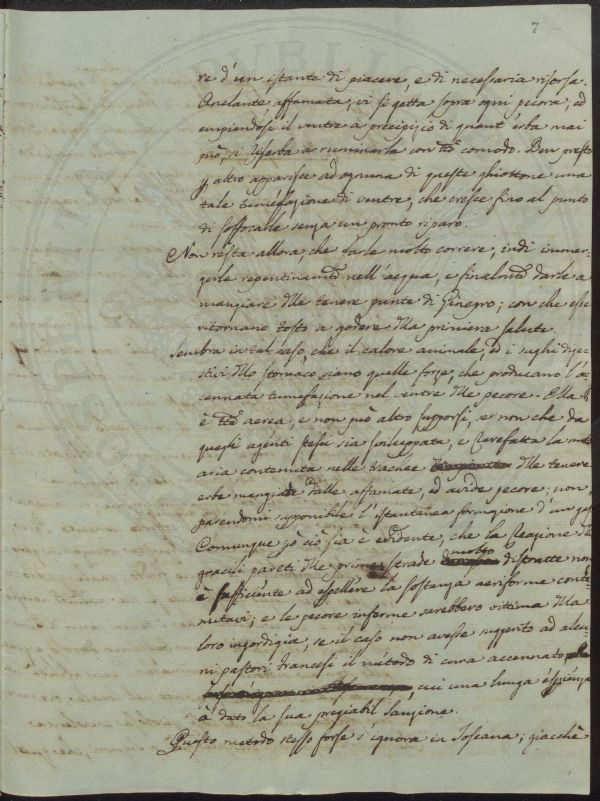 7
re d'un istante di piacere, e di necessaria risorsa.
Anelante affamata, vi si getta sopra ogni pecora; ed
empiendosi il ventre a precipizio di quant'erba mai
può, si riserba a ruminarla con tto comodo. Ben presto
altro apparisce ad ognuna di queste ghiottone una
tale tumefazione di ventre, che cresce fino al punto
di soffocarle senza un pronto riparo.
Non resta allora, che farle molto correre, indi immer-
gerle repentinamte nell'acqua, e finalmte darle a
mangiare delle tenere punte di Ginepro; con che esse
ritornano tosto a godere della primiera salute.
Sembra in tal caso, che il calore animale, ed i sughi dige-
stivi dello stomaco siano quelle forze, che producano l'ac-
cennata tumefazione nel ventre delle pecore. Ella
è tta aerea, e non può altro supporsi, se non che da
quegli agenti stessi sia sviluppata, e rarefatta la
aria contenuta nelle trachee delle tenere
erbe mangiate dalle affamate, ed avide pecore; non
parendomi supponibile l'istantanea formazione d'un gas
Comunque ciò sia è evidente, che la reazione delle
gracili pareti delle prime strade molto distratte non
è sufficiente ad espellere la sostanza aeriforme conte-
nutavi; e le pecore inferme sarebbero vittima della
loro ingordigia, se il caso non avesse suggerito ad alcu-
ni pastori francesi il metodo di cura accennato,
cui una lunga esperienza
à dato la sua pregiabil sanzione.
Questo metodo stesso forse s'ignora in Toscana; giacchè